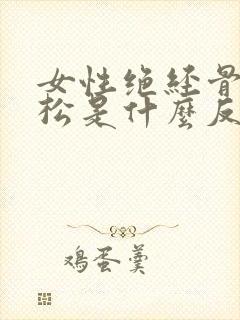 女性绝经骨
松是什麼反
鸡蛋羹